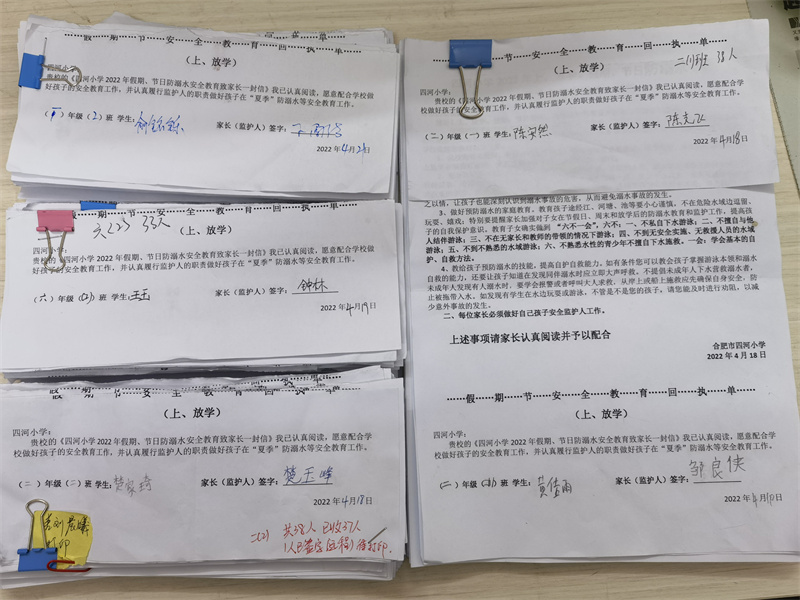 假 期 节 安 全 教 育 回 执 单
（上、放学）
四河小学：
贵校的《四河小学 2022 年假期、节日防溺水安全教育致家长一封信》我已认真阅读，愿意配合学校做
好孩子的安全教育工作，并认真履行监护人的职责做好孩子在“夏季”防溺水等安全教育工作。
年级（2）班 学生： 家长（监护人）签字：
2022 年4月 日
六(2) 33人
（上、放学）
四河小学：
贵校的《四河小学 2022 年假期、节日防溺水安全教育致家长一封信》我已认真阅读，愿意配合学校
做好孩子的安全教育工作，并认真履行监护人的职责做好孩子在“夏季”防溺水等安全教育工作。
（六）年级（2）班 学生：王玉 家长（监护人）签字：钟林
2022 年4月19日
假 期 节 安 全 教 育 回 执 单
（上、放学）
四河小学：
贵校的《四河小学 2022 年假期、节日防溺水安全教育致家长一封信》我已认真阅读，愿意配合学
校做好孩子的安全教育工作，并认真履行监护人的职责做好孩子在“夏季”防溺水等安全教育工作。
（二）年级（二）班 学生： 家长（监护人）签字：楚玉峰
2022 年4月18日
打印
二(2) 共38人 已收37人
1人已签字(远程)待打印.
节 安 全 教 育 回 执 单
（上、放学）
二(1)班 38人
四河小学：
贵校的《四河小学 2022 年假期、节日防溺水安全教育致家长一封信》我已认真阅读，愿意配合学
校做好孩子的安全教育工作，并认真履行监护人的职责做好孩子在“夏季”防溺水等安全教育工作。
（二）年级（一）班 学生：陈安然 家长（监护人）签字：陈克飞
2022 年4月18日
之以情，让孩子也能深刻认识到溺水事故的危害，从而避免溺水事故的发生。
3、做好预防溺水的家庭教育。教育孩子途经江、河塘、池等要小心谨慎，不在危险水域边逗留、
玩耍、嬉戏；特别要提醒家长加强对子女在节假日、周末和放学后的防溺水教育和监护工作，提高孩
子的自我保护意识。教育子女确实做到 “六不一会”，六不：一、不私自下水游泳；二、不擅自与他
人结伴游泳；三、不在无家长和教师的带领的情况下游泳；四、不到无安全实施、无救援人员的水域
游泳；五、不到不熟悉的水域游泳；六、不熟悉水性的青少年不擅自下水施救。一会：学会基本的自
护、自救方法。
4、教给孩子预防溺水的技能，提高自护自救能力。如有条件您可以教会孩子掌握游泳本领和溺水
自救的能力，还要让孩子知道在发现同伴溺水时应立即大声呼救。不提倡未成年人下水营救溺水者，
未成年人发现有人溺水时，要学会报警或者呼叫大人求救，从岸上或船上施救应先确保自身安全，防
止被拖带入水。如发现有学生在水边玩耍或游泳，不管是不是您的孩子，请您能及时进行劝阻，以减
少意外事故的发生。
二、每位家长必须做好自己孩子安全监护人工作。
上述事项请家长认真阅读并予以配合
合肥市四河小学
2022 年 4 月 18 日
假 期 节 安 全 教 育 回 执 单
（上、放学）
四河小学：
贵校的《四河小学 2022 年假期、节日防溺水安全教育致家长一封信》我已认真阅读，愿意配合学
校做好孩子的安全教育工作，并认真履行监护人的职责做好孩子在“夏季”防溺水等安全教育工作。
（二）年级 班 学生：黄佳雨 家长（监护人）签字：邹良侠
2022 年4月 日